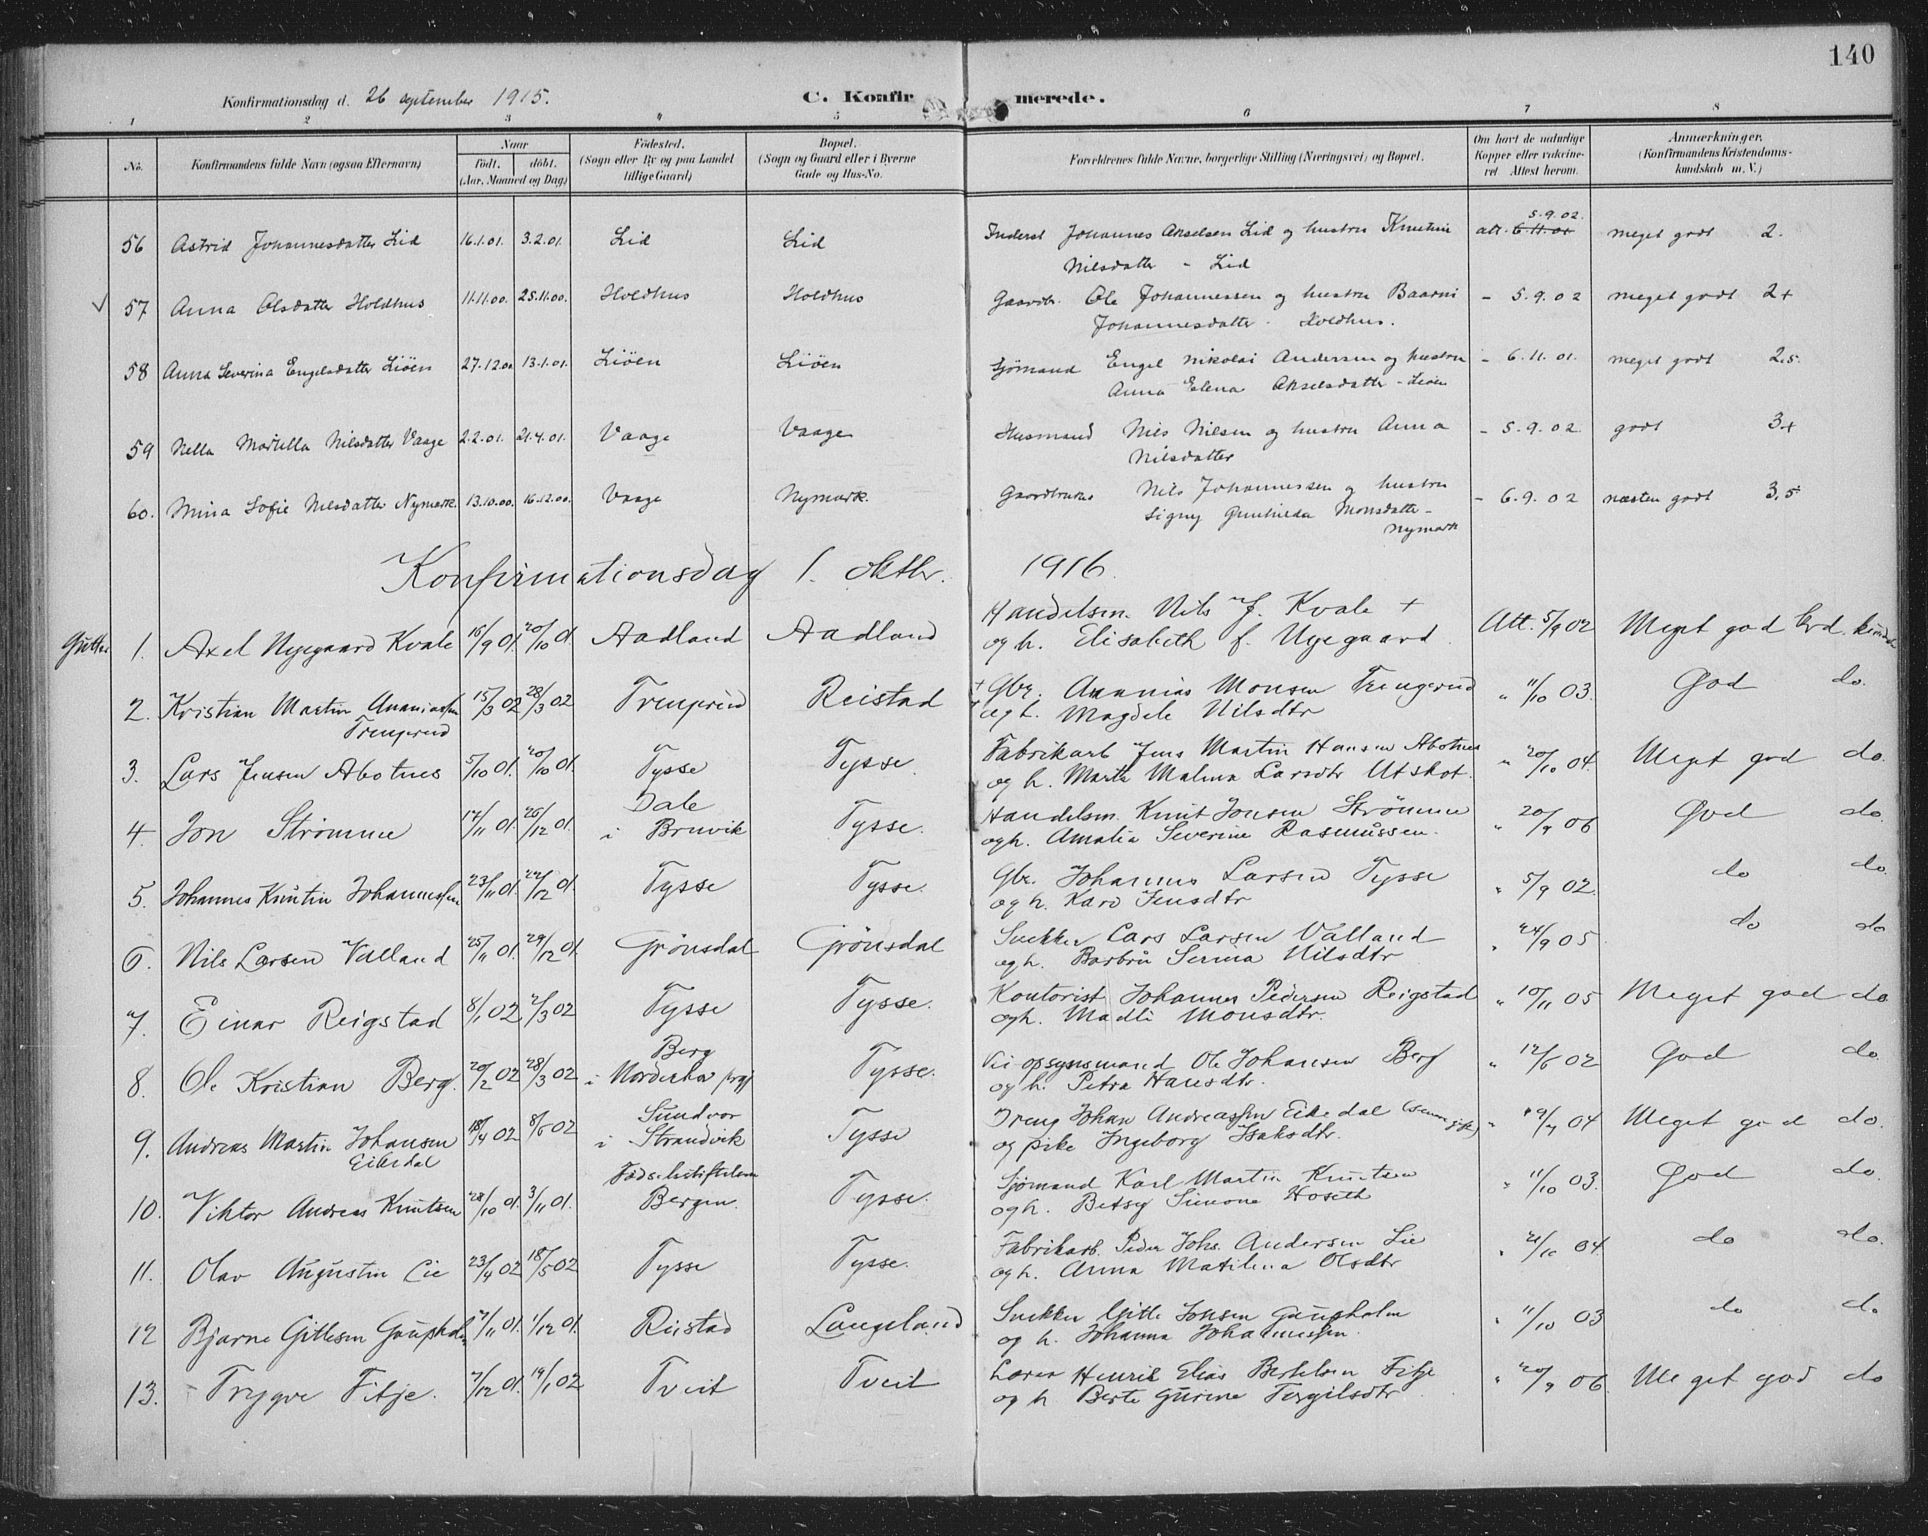 140
Konfirmationsdag d. 26 september 1915. C. Konfirmerede.
1 2 3 4 5 6 7 8
No. Konfirmandens fulde Navn (ogsaa Efternavn) Naar födt. döbt. (Aar, Maaned og Dag) Födested. (Sogn eller By og paa Landet tillige Gaard) Bopæl. (Sogn og Gaard eller i Byerne Gade og Hus-No. Forældrenes fulde Navne, borgerlige Stilling (Næringsvei) og Bopæl. Om havt de naturlige Kopper eller vaccineret Attest herom. Anmærkninger. (Konfirmandens Kristendomskundskab m. V.)
5.9.02.
56 Astrid Johannesdatter Lid 16.1.01. 3.2.01. Lid Lid Inderst Johannes Akselsen Lid og hustru Knutine att. 6.11.01 meget godt 2.
Nilsdatter - Lid
57 Anna Olsdatter Holdhus 11.11.00. 25.11.00. Holdhus Holdhus Gaardbr. Ole Johannessen og hustru Baarni - 5.9.02 meget godt 2+
Johannesdatter - Holdhus.
58 Anna Severina Engelsdatter Liöen 27.12.00 13.1.01. Liöen Liöen Sjömand Engel Nikolai Andersen og hustru - 6.11.01. meget godt 2,5.
Anna Elena Akselsdatter - Liöen
59 Nella Martella Nilsdatter Vaage 2.2.01. 21.4.01. Vaage Vaage Husmand Nils Nilsen og hustru Anna - 5.9.02 godt 3+
Nilsdatter
60. Mina Sofie Nilsdatter Nymark. 13.10.00. 16.12.00. Vaage Nymark. Gaardbruker Nils Johannessen og hustru - 6.9.02 næsten godt 3,5
Signy Gunhilda Monsdatter -
Nymark
Konfirmationsdag 1. oktbr. 1916.
Gutter 1. Axel Nyegaard Kvale 16/9 01. 20/10 01 Aadland Aadland Handelsm. Nils J. Kvale + Att. 5/9 02 Meget god krd. kundsk
og h. Elisabeth f. Nyegaard
2. Kristian Martin Ananiassen 15/3 02 28/3 02 Trengerid Reistad + Gbr. Ananias Monsen Trengerud " 11/10 03. God do.
Trengerud og h. Magdele Nilsdtr
3. Lars Jensen Abotnes 5/10 01. 20/10 01. Tysse Tysse. Fabrikarb Jens Martin Hansen Abotnes " 20/10 04. Meget god do.
og h. Marta Malena Larsdtr Utskot.
4 Jon Strömme 17/11 01. 26/12 01. Dale i Bruvik Tysse. Handelsm. Knut Jonsen Strömme " 20/9 06 God do.
og h. Amalia Severine Rasmussen.
5. Johannes Knutin Johannessen 23/11 01. 22/12 01. Tysse Tysse. Gbr. Johannes Larsen Tysse " 5/9 02. do do.
og h. Kari Jensdtr
6. Nils Larsen Valland 25/11 01. 29/12 01. Grönsdal Grönsdal Snekker Lars Larsen Valland " 24/9 05 do do
og h. Barbru Serina Nilsdtr
7. Einar Reigstad 8/1 02. 2/3 02 Tysse Tysse. Kontorist Johannes Pedersen Reigstad " 10/11 05 Meget god do
og h. Madli Monsdtr.
8. Ole Kristian Berg. 20/2 02 28/3 02 Berg i Norderhov prgj Tysse. Vei opsynsmand Ole Johansen Berg " 12/6 02 God do.
og h. Petra Hansdtr.
9. Andreas Martin Johansen 18/4 02 8/6 02 Sundvor i Strandvik Tysse Dreng Johan Andreassen Eikedal (senere gift) " 19/9 04 Meget god do.
Eikedal og pike Ingeborg Isaksdtr.
10. Viktor Andreas Knutsen 28/10 01. 3/11 01. Födselsstiftelsen Bergen. Tysse. Sjömand Karl Martin Knutsen " 11/10 03. God do
og h. Betsy Simone Hoseth
11. Olav Augustin Lie 23/4 02 18/5 02 Tysse Tysse. Fabrikarb. Peder Johs. Andersen Lie " 21/10 04. do do.
og h. Anna Matilena Olsdtr
12 Bjarne Gittesen Gaupholm 7/11 01. 1/12 01. Reistad Langeland Snekker Gitle Jonsen Gaupholm " 11/10 03 do do
og h. Johanna Johannessen.
13. Trygve Fitje. 7/12 01. 19/1 02 Tveit Tveit Lærer Henrik Elias Bertelsen Fitje " 20/9 06 Meget god do
og h Berte Gurine Torgilsdtr